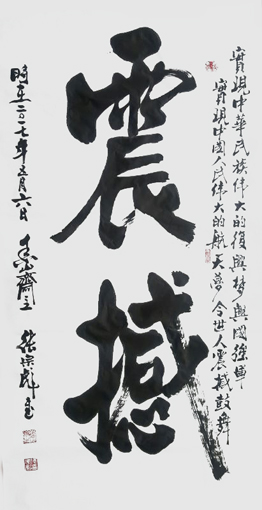 實現中華民族偉大的復興夢與國強盛
實現中國人民偉大的航天夢令世人震撼鼓舞
震撼
時在二〇一七年五月六日
齋主
張宗彪